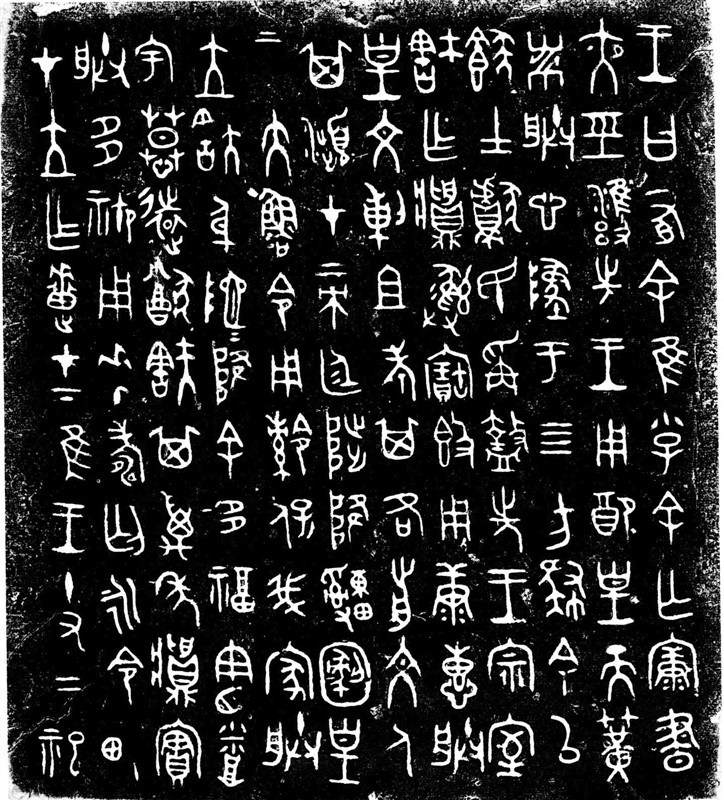 王曰有余隹小子余亡康晝
夜巠雍先王用配皇天簧
黹朕心墜于四方肆余以
𩛥士獻民爯盩先王宗室
㝬乍將彝寶簋用康惠朕
皇文剌且考其各前文人
其瀕才帝廷陟降申恪皇
帝大魯令用䋣保我家朕
立㝬身阤阤降余多福憲烝
宇慕遠猷㝬其萬年將實
朕多禦用壽匄永令畯
才立乍疐才下隹王十又二祀